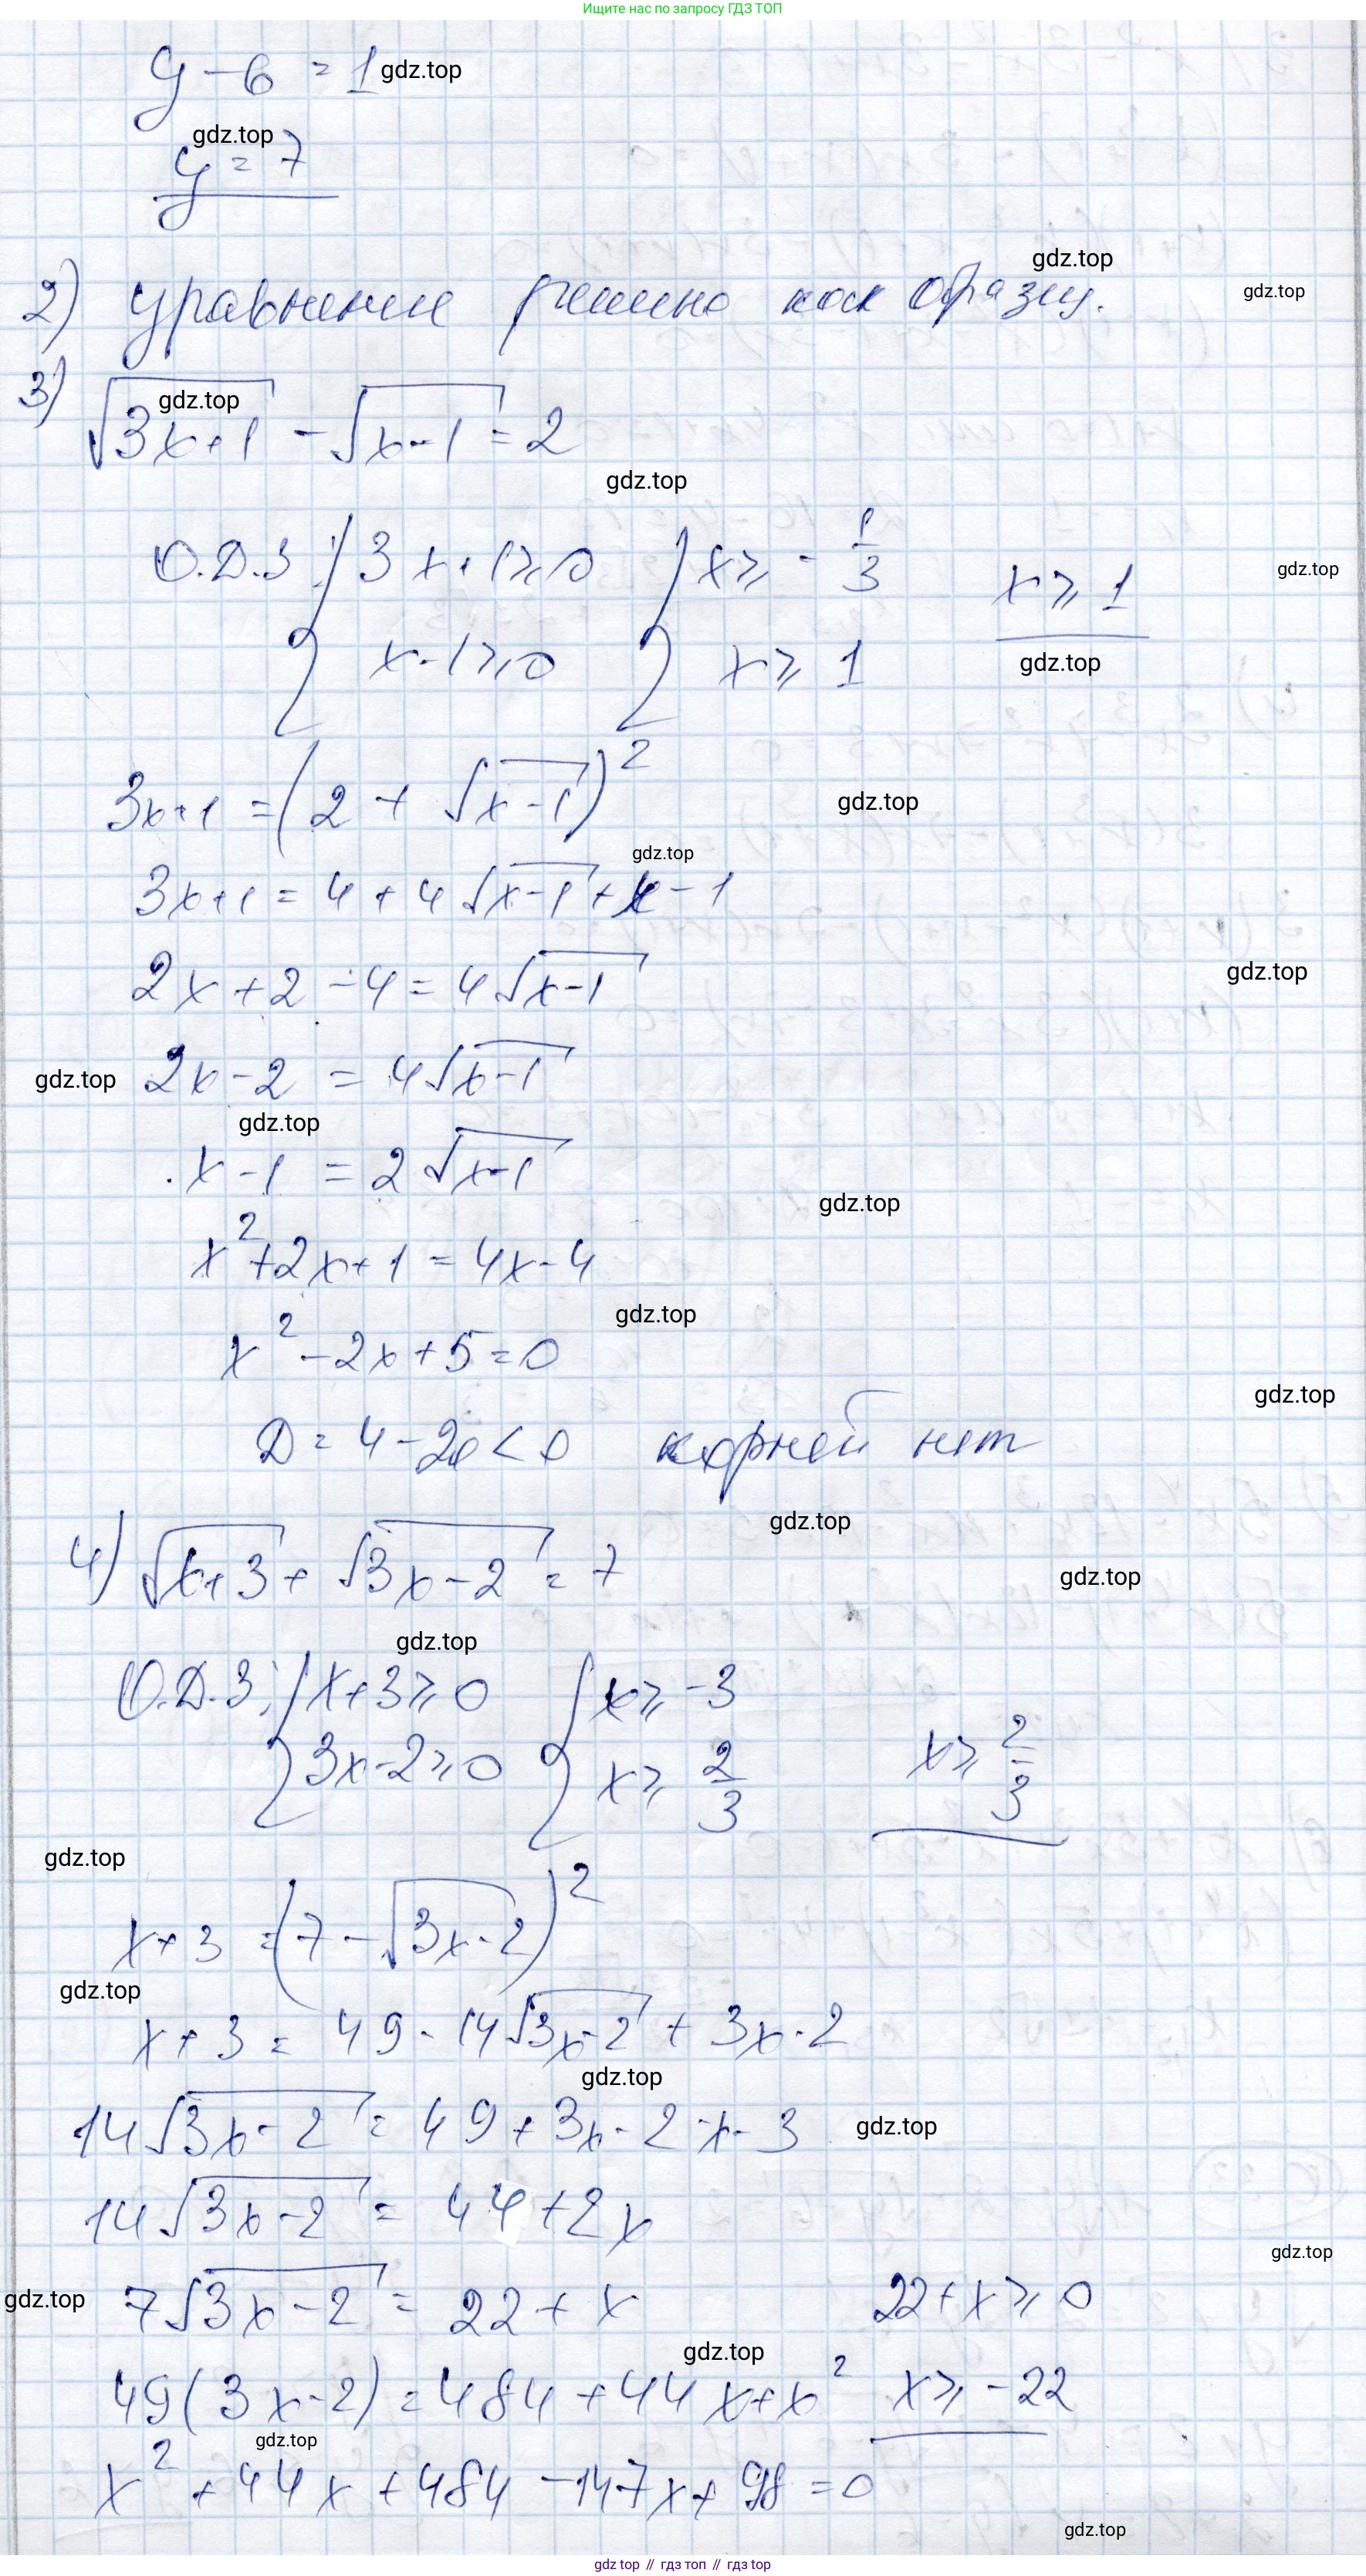 Ищите нас по запросу ГДЗ ТОП
y - 6 = 1 gdz.top
gdz.top
y = 7
gdz.top
2) уравнение решено как образец. gdz.top
3) √(3x+1) - √(x-1) = 2
gdz.top
gdz.top
О.Д.З: { 3x+1 ≥ 0 { x ≥ -1/3 x ≥ 1 gdz.top
x-1 ≥ 0 x ≥ 1 gdz.top
3x+1 = (2 + √(x-1))² gdz.top
gdz.top
3x+1 = 4 + 4√(x-1) + x - 1
2x + 2 - 4 = 4√(x-1) gdz.top
gdz.top 2x - 2 = 4√(x-1)
gdz.top
x - 1 = 2√(x-1)
gdz.top
x² + 2x + 1 = 4x - 4
gdz.top
x² - 2x + 5 = 0
gdz.top
D = 4 - 20 < 0 корней нет
gdz.top
4) √(x+3) + √(3x-2) = 7 gdz.top
gdz.top
О.Д.З: { x+3 ≥ 0 { x ≥ -3 x ≥ 2/3
3x-2 ≥ 0 x ≥ 2/3
gdz.top
x + 3 = (7 - √(3x-2))²
gdz.top
x + 3 = 49 - 14√(3x-2) + 3x - 2
gdz.top
14√(3x-2) = 49 + 3x - 2 - x - 3 gdz.top
14√(3x-2) = 44 + 2x
gdz.top
gdz.top 7√(3x-2) = 22 + x 22 + x ≥ 0
gdz.top
49(3x-2) = 484 + 44x + x² x ≥ -22
gdz.top
x² + 44x + 484 - 147x + 98 = 0
gdz.top
gdz top // гдз топ // гдз top